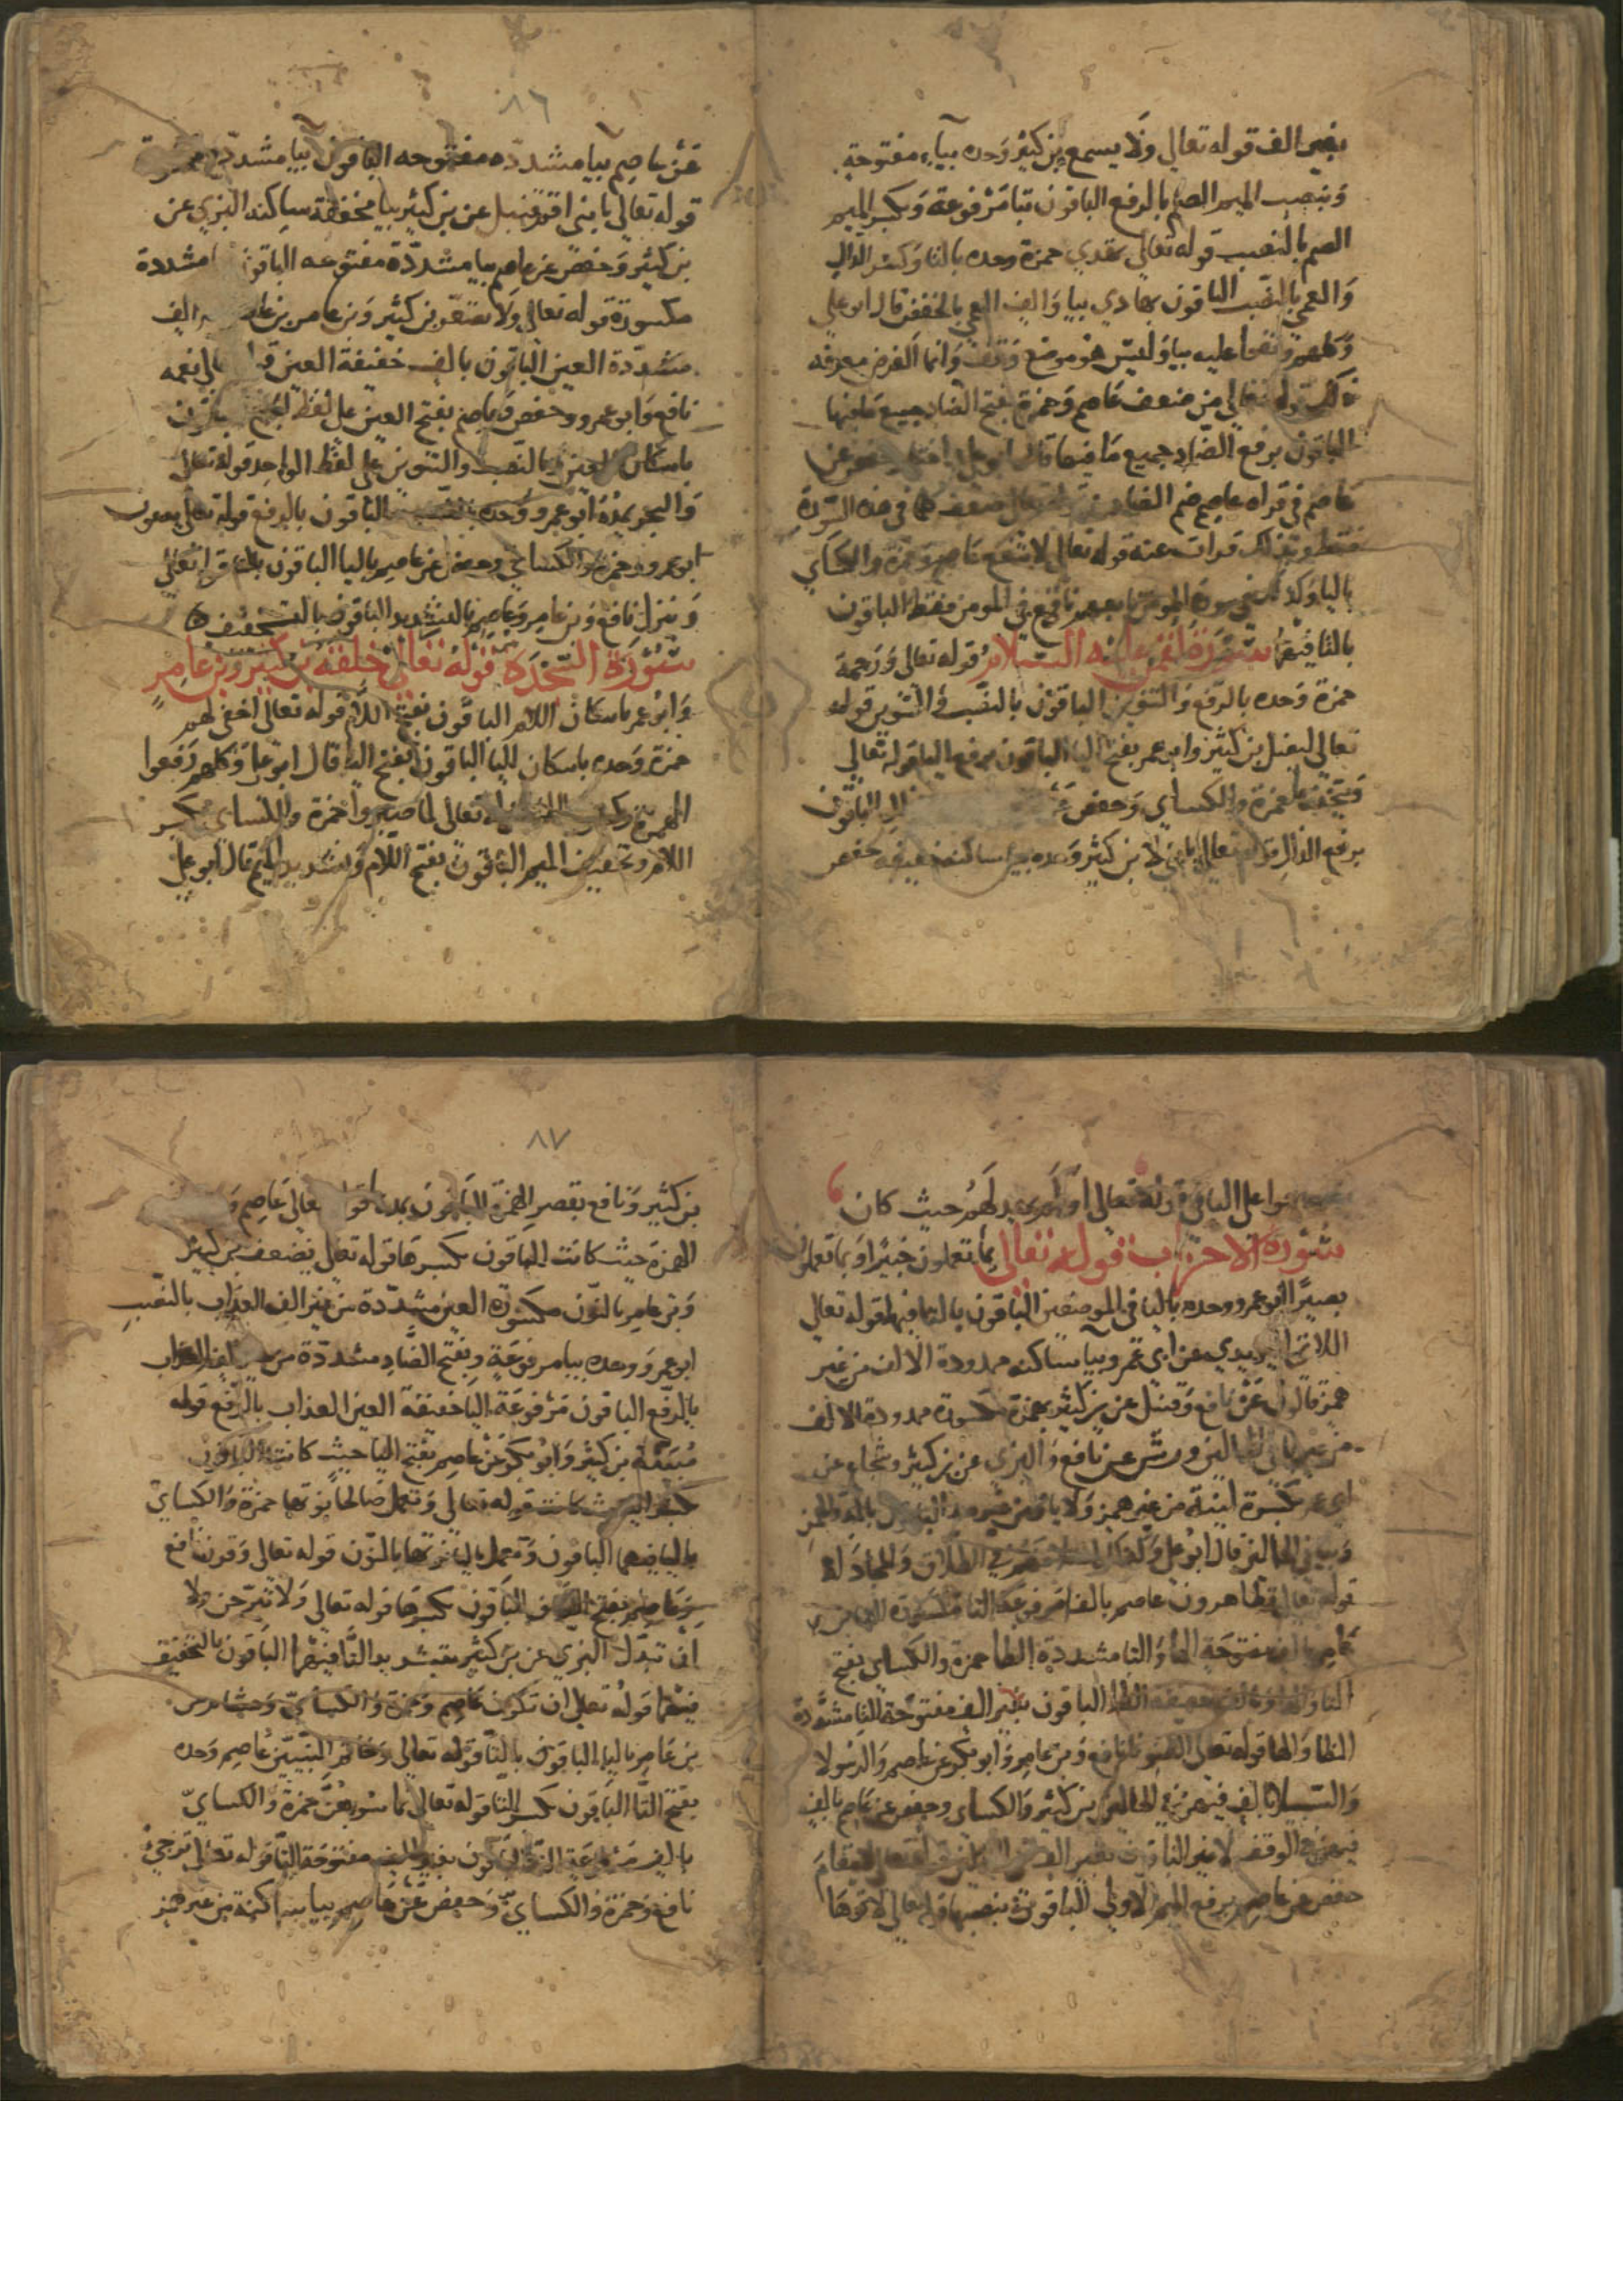 بغير الف قوله تعالي ولا يسمع بن كثير وحده بياء مفتوحة
وبنصب الميم الصم بالرفع الباقون بتا مرفوعة وبكسر الميم
الصم بالنصب قوله تعالي تهدي حمزة وحده بالتا وكسر الدال
والعمي بالنصب الباقون بهادي بيا والف العمي بالخفض قال ابو علي
وكلهم وقفوا عليه بيا وليس هو موضع وقف وانما الغرض معرفه
ذلك قوله تعالي من ضعف عاصم وحمزة بفتح الضاد جميع ما فيها
الباقون برفع الضاد جميع ما فيها قال ابو علي اختار حفص عن
عاصم في قراه عاصم ضم الضاد في هذه السورة
فقط وبذلك قرات عنه قوله تعالي لا ينفع عاصم وحمزة والكساي
باليا وكذلك في سورة المومن تابعهم نافع في المومن فقط الباقون
بالتا فيهما سورة لقمن عليه السلام قوله تعالى ورحمة
حمزة وحده بالرفع والتنوين الباقون بالنصب والتنوين قوله
تعالي ليضل بن كثير وابو عمر بفتح اليا الباقون برفع اليا قوله تعالي
ويتخذها حمزة والكساي وحفص الباقون
برفع الذال قوله تعالي يا بني لا بن كثير وحده بيا ساكنه خفيفه حفص
٨٦
عن عاصم بيا مشدده مفتوحه الباقون بيا مشددة
قوله تعالي يا بني اقم قنبل عن بن كثير بيا مخففة ساكنه البزي عن
بن كثير وحفص عن عاصم بيا مشددة مفتوحه الباقون مشددة
مكسورة قوله تعالي ولا تصعر بن كثير وبن عامر الف
مشددة العين الباقون بالف خفيفة العين نعمه
نافع وابو عمرو وحفص عن عاصم بفتح العين على لفظ
باسكان العين بالنصب والتنوين على لفظ الواحد قوله تعالى
والبحر يمده ابو عمرو وحده بالنصب الباقون بالرفع قوله تعالي يدعون
ابو عمرو وحمزة والكساي وحفص عن عاصم باليا الباقون بالتا قوله تعالى
وينزل نافع وبن عامر وعاصم بالتشديد الباقون بالتخفيف
سورة السجدة قوله تعالى خلقه بن كثير وبن عامر
وابو عمر باسكان اللام الباقون بفتح اللام قوله تعالي اخفي لهم
حمزة وحده باسكان اليا الباقون بفتح اليا قال ابو علي وكلهم رفعوا
الهمزة وكسر تعالي لما صبروا حمزة والكساي بكسر
اللام وتخفيف الميم الباقون بفتح اللام وتشديد الميم قال ابو علي
على اليا قوله تعالى اولم يهد لهم حيث كان
سورة الاحزاب قوله تعالى بما تعملون خبيرا وبما تعملون
بصيرا ابو عمرو وحده باليا في الموضعين الباقون بالتا فيهما قوله تعالي
اللائي اليزيدي عن ابي عمرو بيا ساكنه ممدودة الالف من غير
همز قالون عن نافع وقنبل عن بن كثير بهمزة مكسورة ممدودة الالف
من غير يا في الحالين ورش عن نافع والبزي عن بن كثير وشجاع عن
ابي عمر بكسرة لينة من غير همز ولا يا من غير مد الباقون بالمد والهمز
وبيا في الحالين قال ابو علي وكذلك اختلافهم في الطلاق والمجادلة
قوله تعالي تظاهرون عاصم بالف مرفوعة التا مكسورة الها بن
عامر بالف مفتوحة التا مشددة الظا حمزة والكساي بفتح
التا والها وبالف خفيفة الظا الباقون بغير الف مفتوحة التا مشددة
الظا والها قوله تعالى الظنونا نافع وبن عامر وابو بكر عن عاصم والرسولا
والسبيلا بالف فيهن في الحالين بن كثير والكساي وحفص عن عاصم بالف
فيهن في الوقف لا غير الباقون بغير الف
حفص عن عاصم برفع الميم الاولى الباقون بنصبها قوله تعالي لاتوها
٨٧
بن كثير ونافع بقصر الهمزة الباقون بمدها تعالى عاصم
الهمزة حيث كانت الباقون بكسرها قوله تعالى يضعف بن كثير
وبن عامر بالنون مكسورة العين مشددة من غير الف العذاب بالنصب
ابو عمرو وحده بيا مرفوعة وبفتح الضاد مشددة من غير الف العذاب
بالرفع الباقون مرفوعة اليا خفيفة العين العذاب بالرفع قوله
مبينة بن كثير وابو بكر عن عاصم بفتح اليا حيث كانت الباقون
بكسر اليا حيث كانت قوله تعالي وتعمل صالحا نوتها حمزة والكسايّ
باليا فيهما الباقون وتعمل بالتا نوتها بالنون قوله تعالي وقرن نافع
وعاصم بفتح القاف الباقون بكسرها قوله تعالي ولا تبرجن ولا
ان تبدل البزي عن بن كثير بتشديد التا فيهما الباقون بالتخفيف
فيهما قوله تعالي ان تكون عاصم وحمزة والكسايّ وهشام عن
بن عامر باليا الباقون بالتا قوله تعالي وخاتم النبيين عاصم وحده
بفتح التا الباقون بكسر التا قوله تعالى تماسوهن حمزة والكسايّ
بالف مرفوعة التا الباقون بغير الف مفتوحة التا قوله تعالى ترجي
نافع وحمزة والكساي وحفص عن عاصم بيا ساكنة من غير همز